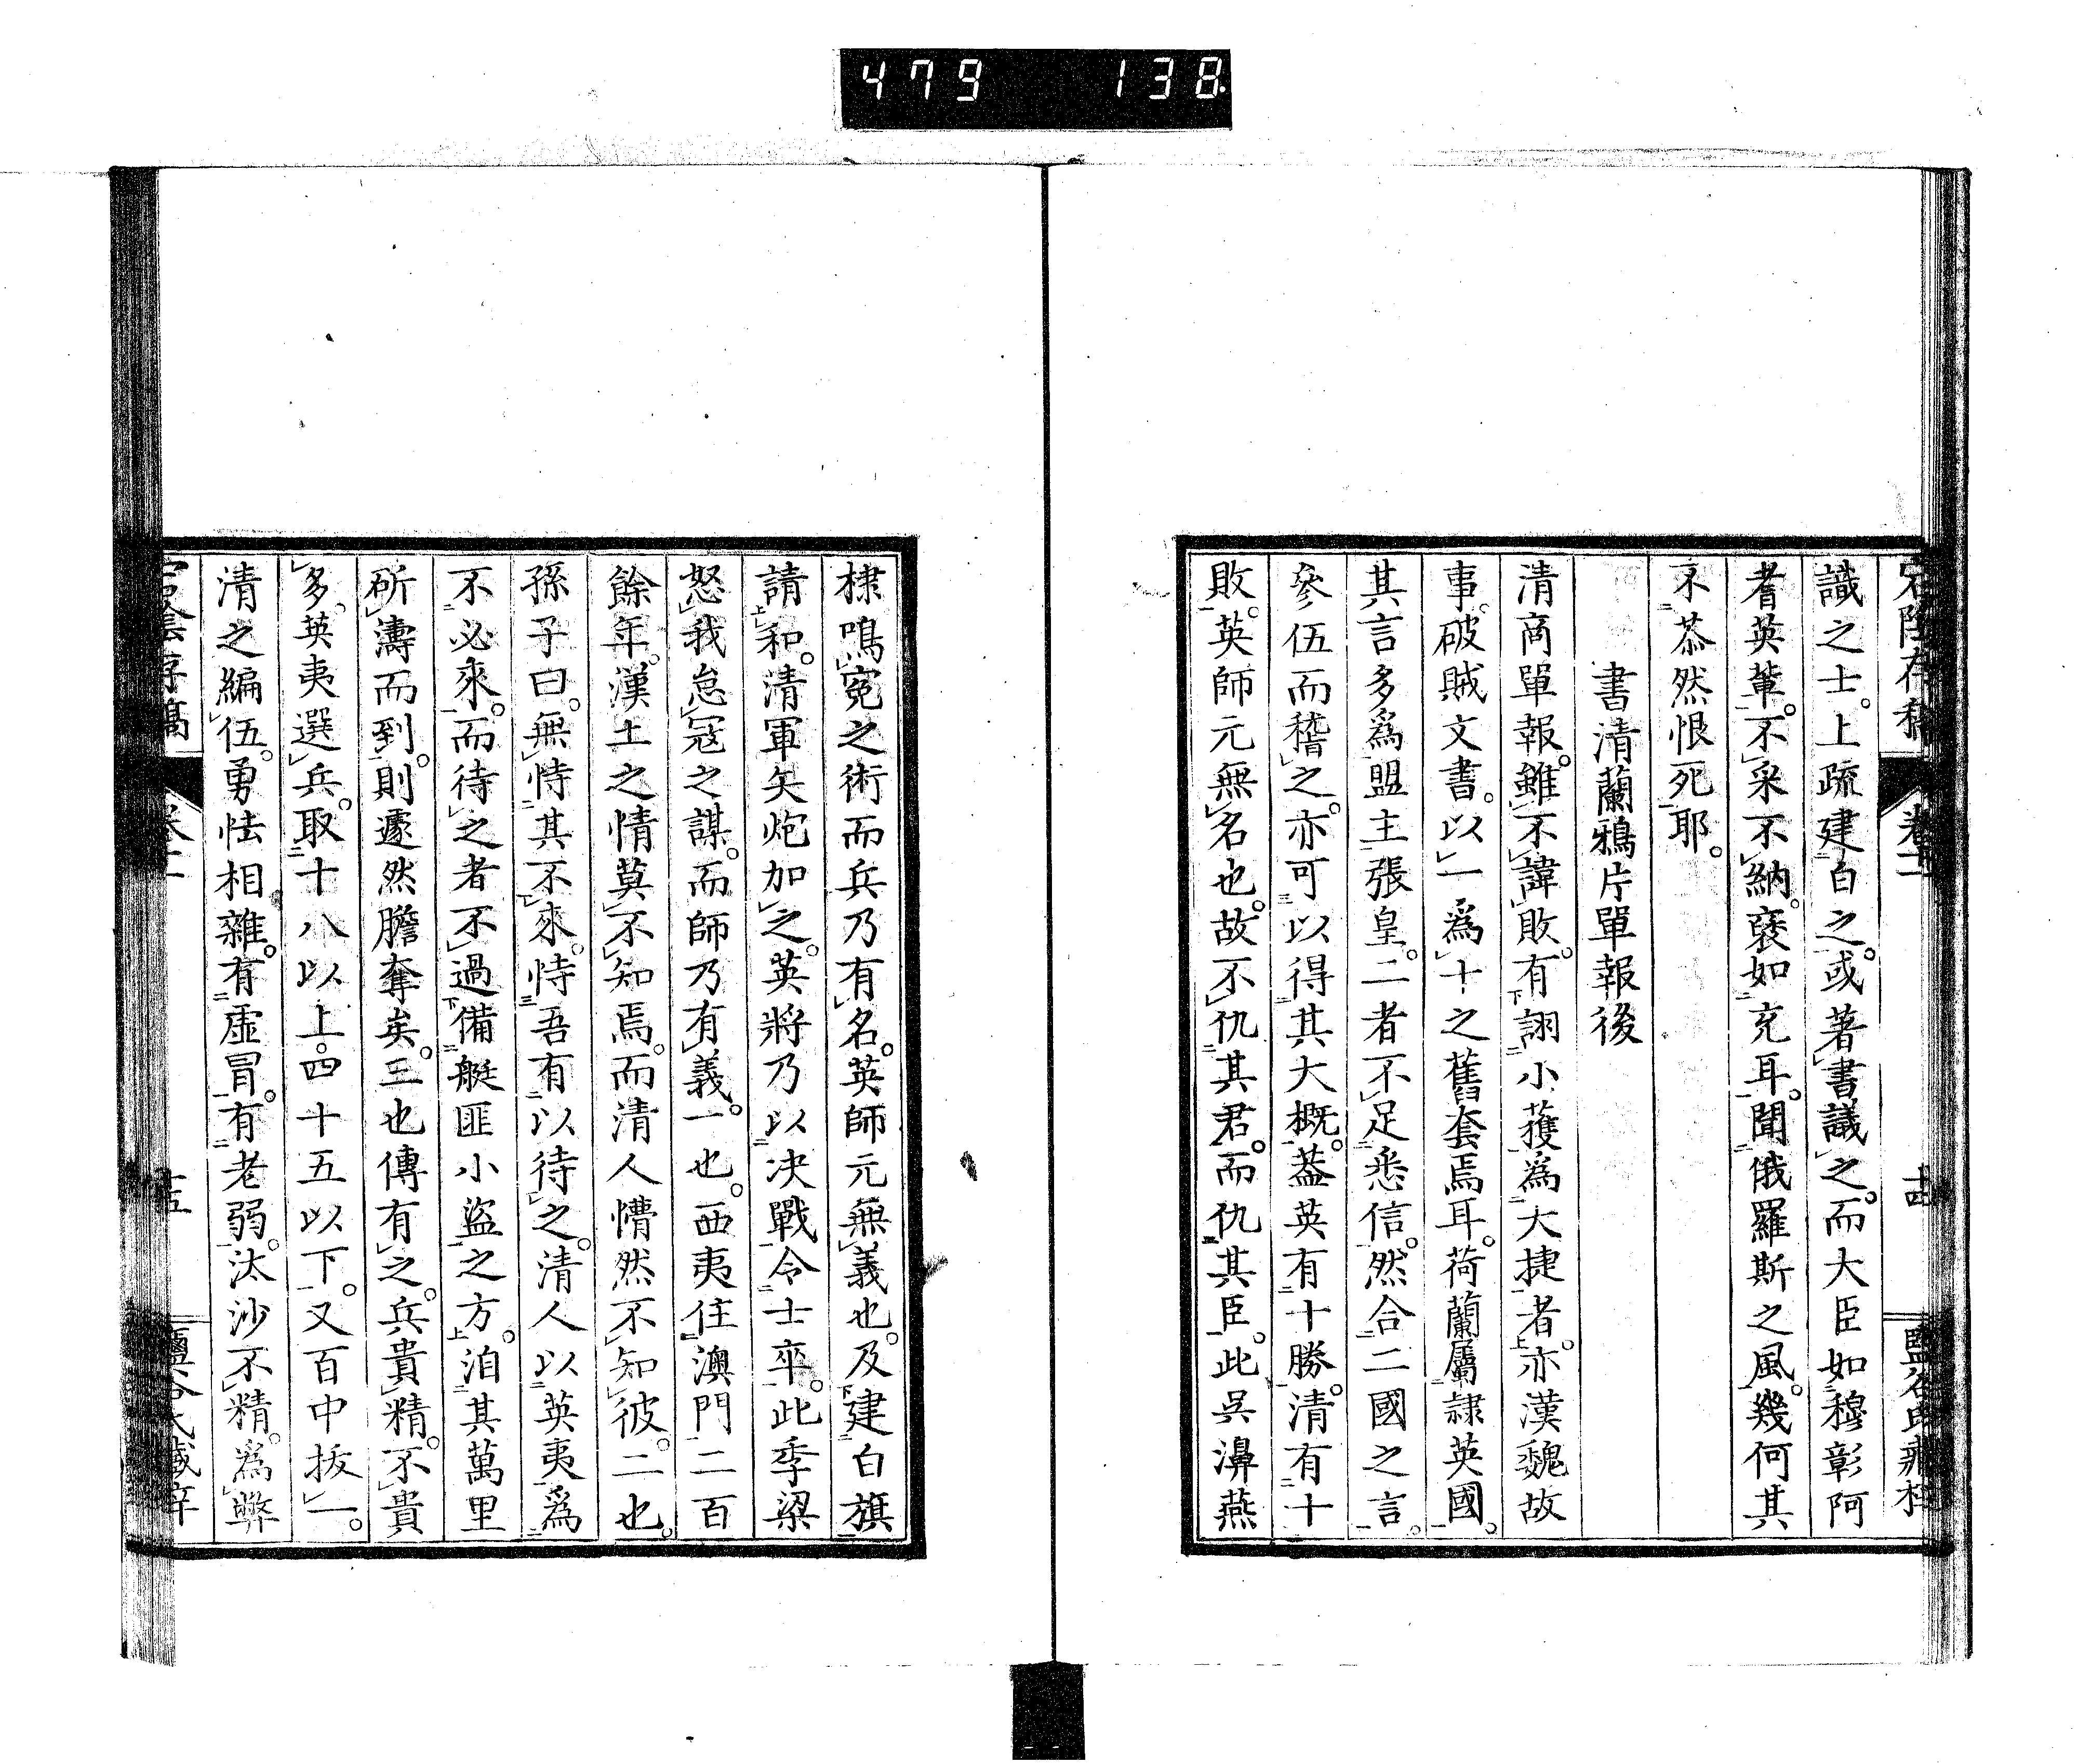 479 138
宕陰存稿 卷十二 十四 鹽谷氏藏梓
識之士。上疏建白之。或著書議之。而大臣如穆彰阿
耆英輩。不采不納。褎如充耳。聞俄羅斯之風。幾何其
不恭然恨死耶。
書清蘭鴉片單報後
清商單報。雖不諱敗。有詡小獲為大捷者。亦漢魏故
事。破賊文書。以一為十之舊套焉耳。荷蘭屬隷英國。
其言多爲盟主張皇。二者不足悉信。然合二國之言。
參伍而稽之。亦可以得其大概。葢英有十勝。清有十
敗。英師元無名也。故不仇其君。而仇其臣。此吳濞燕
棣鳴冤之術而兵乃有名。英師元無義也。及建白旗
請和。清軍矢炮加之。英將乃以决戰令士卒。此季梁
怒我怠冦之謀。而師乃有義。一也。西夷住澳門二百
餘年。漢土之情莫不知焉。而清人懵然不知彼。二也。
孫子曰。無恃其不來。恃吾有以待之。清人以英夷爲
不必來。而待之者不過備艇匪小盜之方。洎其萬里
斫濤而到。則遽然膽奪矣。三也傳有之。兵貴精。不貴
多。英夷選兵。取十八以上。四十五以下。又百中拔一。
清之編伍。勇怯相雜。有虛冒。有老弱。汰沙不精。爲弊
宕陰存稿 卷十二 十五 鹽谷氏藏梓